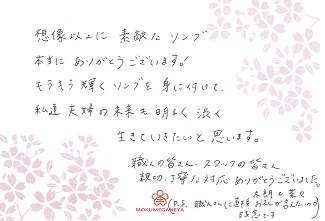 想像以上に 素敵な リング
本当に ありがとうございます!
キラキラ 輝く リングを 身に付けて、
私達 夫婦の 未来も 明るく 渋く
生きていきたいと 思います。
職人の皆さん、スタッフの皆さん
親切、丁寧な対応 ありがとうございました。
(P.S. 職人さんに直接 お礼が言えないのが
残念です
MOKUMEGANEYA